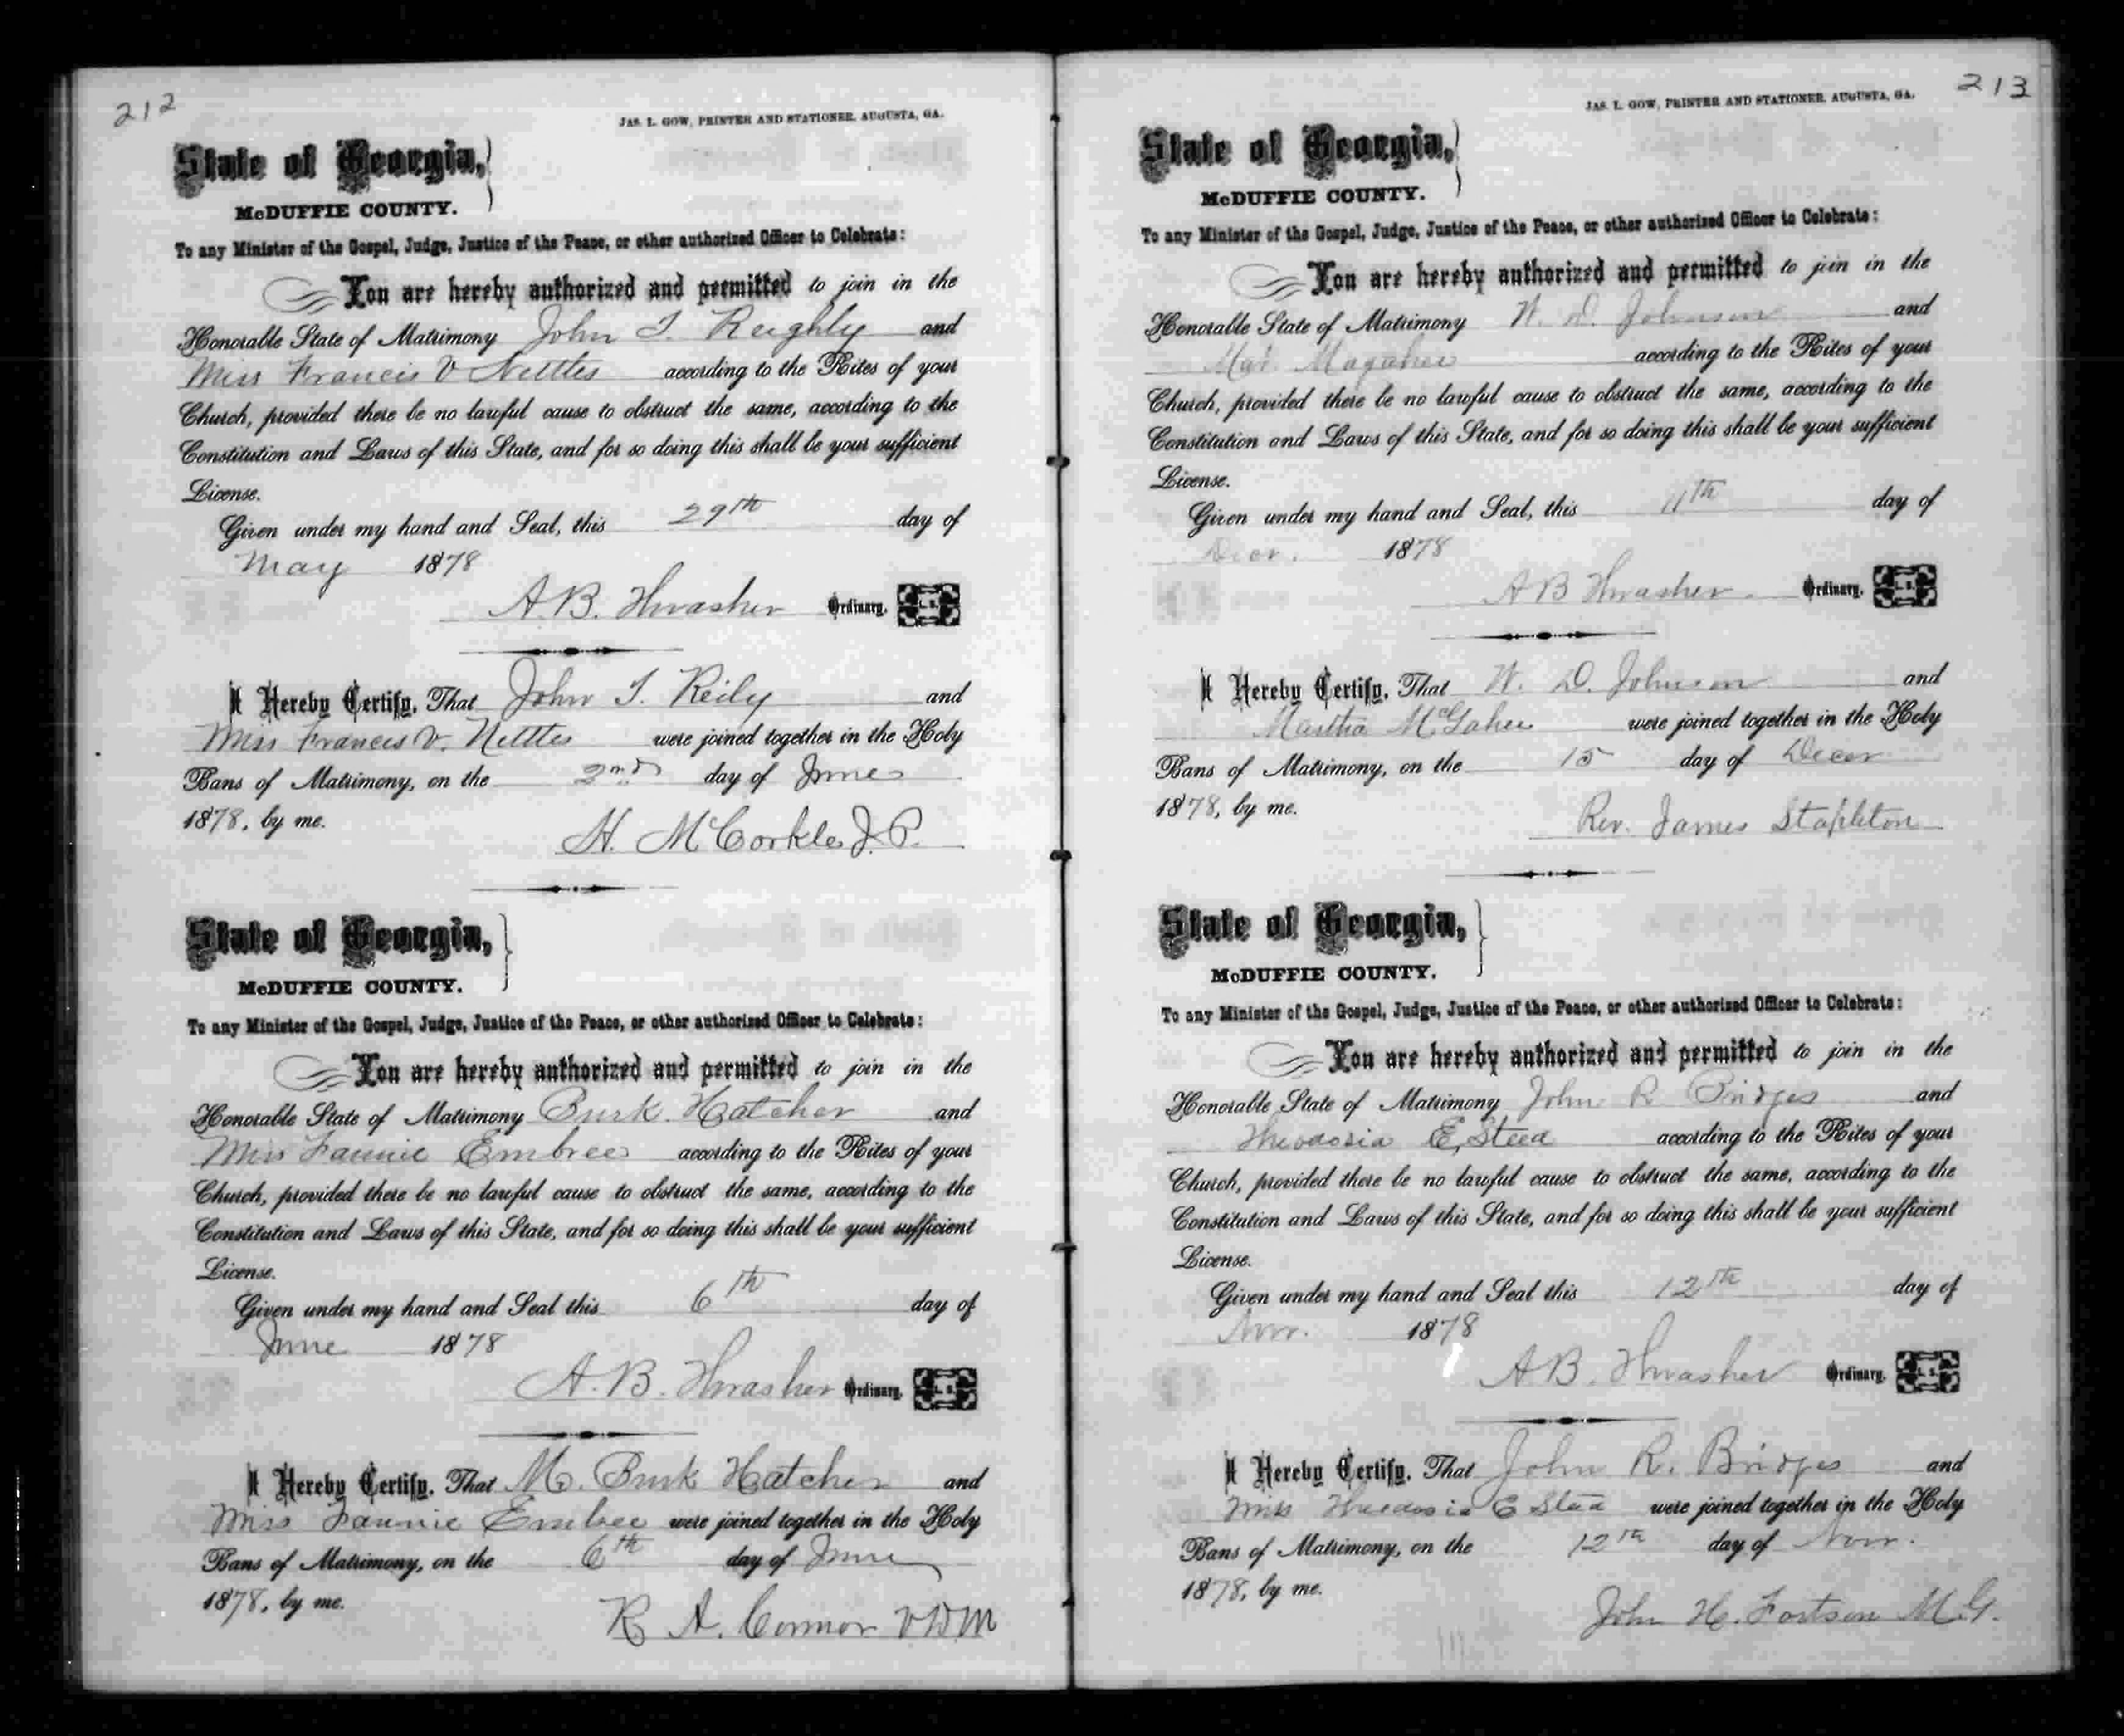 212
JAS. L. GOW, PRINTER AND STATIONER, AUGUSTA, GA.
State of Georgia,
McDUFFIE COUNTY.
To any Minister of the Gospel, Judge, Justice of the Peace, or other authorized Officer to Celebrate:
You are hereby authorized and permitted to join in the
Honorable State of Matrimony John T. Reighly and
Miss Francis V Nettles according to the Rites of your
Church, provided there be no lawful cause to obstruct the same, according to the
Constitution and Laws of this State, and for so doing this shall be your sufficient
License.
Given under my hand and Seal, this 29th day of
May 1878
A. B. Thrasher Ordinary. L. S.
I Hereby Certify, That John T. Reily and
Miss Francis V. Nettles were joined together in the Holy
Bans of Matrimony, on the 2nd day of June
1878, by me.
H. McCorkle J. P.
State of Georgia,
McDUFFIE COUNTY.
To any Minister of the Gospel, Judge, Justice of the Peace, or other authorized Officer to Celebrate:
You are hereby authorized and permitted to join in the
Honorable State of Matrimony Burk Hatcher and
Miss Fannie Embree according to the Rites of your
Church, provided there be no lawful cause to obstruct the same, according to the
Constitution and Laws of this State, and for so doing this shall be your sufficient
License.
Given under my hand and Seal this 6th day of
June 1878
A. B. Thrasher Ordinary. L. S.
I Hereby Certify, That M. Burk Hatcher and
Miss Fannie Embree were joined together in the Holy
Bans of Matrimony, on the 6th day of June
1878, by me.
R. A. Connor V D M
213
JAS. L. GOW, PRINTER AND STATIONER, AUGUSTA, GA.
State of Georgia,
McDUFFIE COUNTY.
To any Minister of the Gospel, Judge, Justice of the Peace, or other authorized Officer to Celebrate:
You are hereby authorized and permitted to join in the
Honorable State of Matrimony W. D. Johnson and
Magahee according to the Rites of your
Church, provided there be no lawful cause to obstruct the same, according to the
Constitution and Laws of this State, and for so doing this shall be your sufficient
License.
Given under my hand and Seal, this 11th day of
Decr. 1878
A B Thrasher Ordinary. L. S.
I Hereby Certify, That W. D. Johnson and
Martha McGahee were joined together in the Holy
Bans of Matrimony, on the 15 day of Decer
1878, by me.
Rev. James Stapleton
State of Georgia,
McDUFFIE COUNTY.
To any Minister of the Gospel, Judge, Justice of the Peace, or other authorized Officer to Celebrate:
You are hereby authorized and permitted to join in the
Honorable State of Matrimony John R Bridges and
Theodosia E, Steed according to the Rites of your
Church, provided there be no lawful cause to obstruct the same, according to the
Constitution and Laws of this State, and for so doing this shall be your sufficient
License.
Given under my hand and Seal this 12th day of
Novr. 1878
A B. Thrasher Ordinary. L. S.
I Hereby Certify, That John R. Bridges and
Miss Theodosia E Steed were joined together in the Holy
Bans of Matrimony, on the 12th day of Novr.
1878, by me.
John H. Fortson M. G.